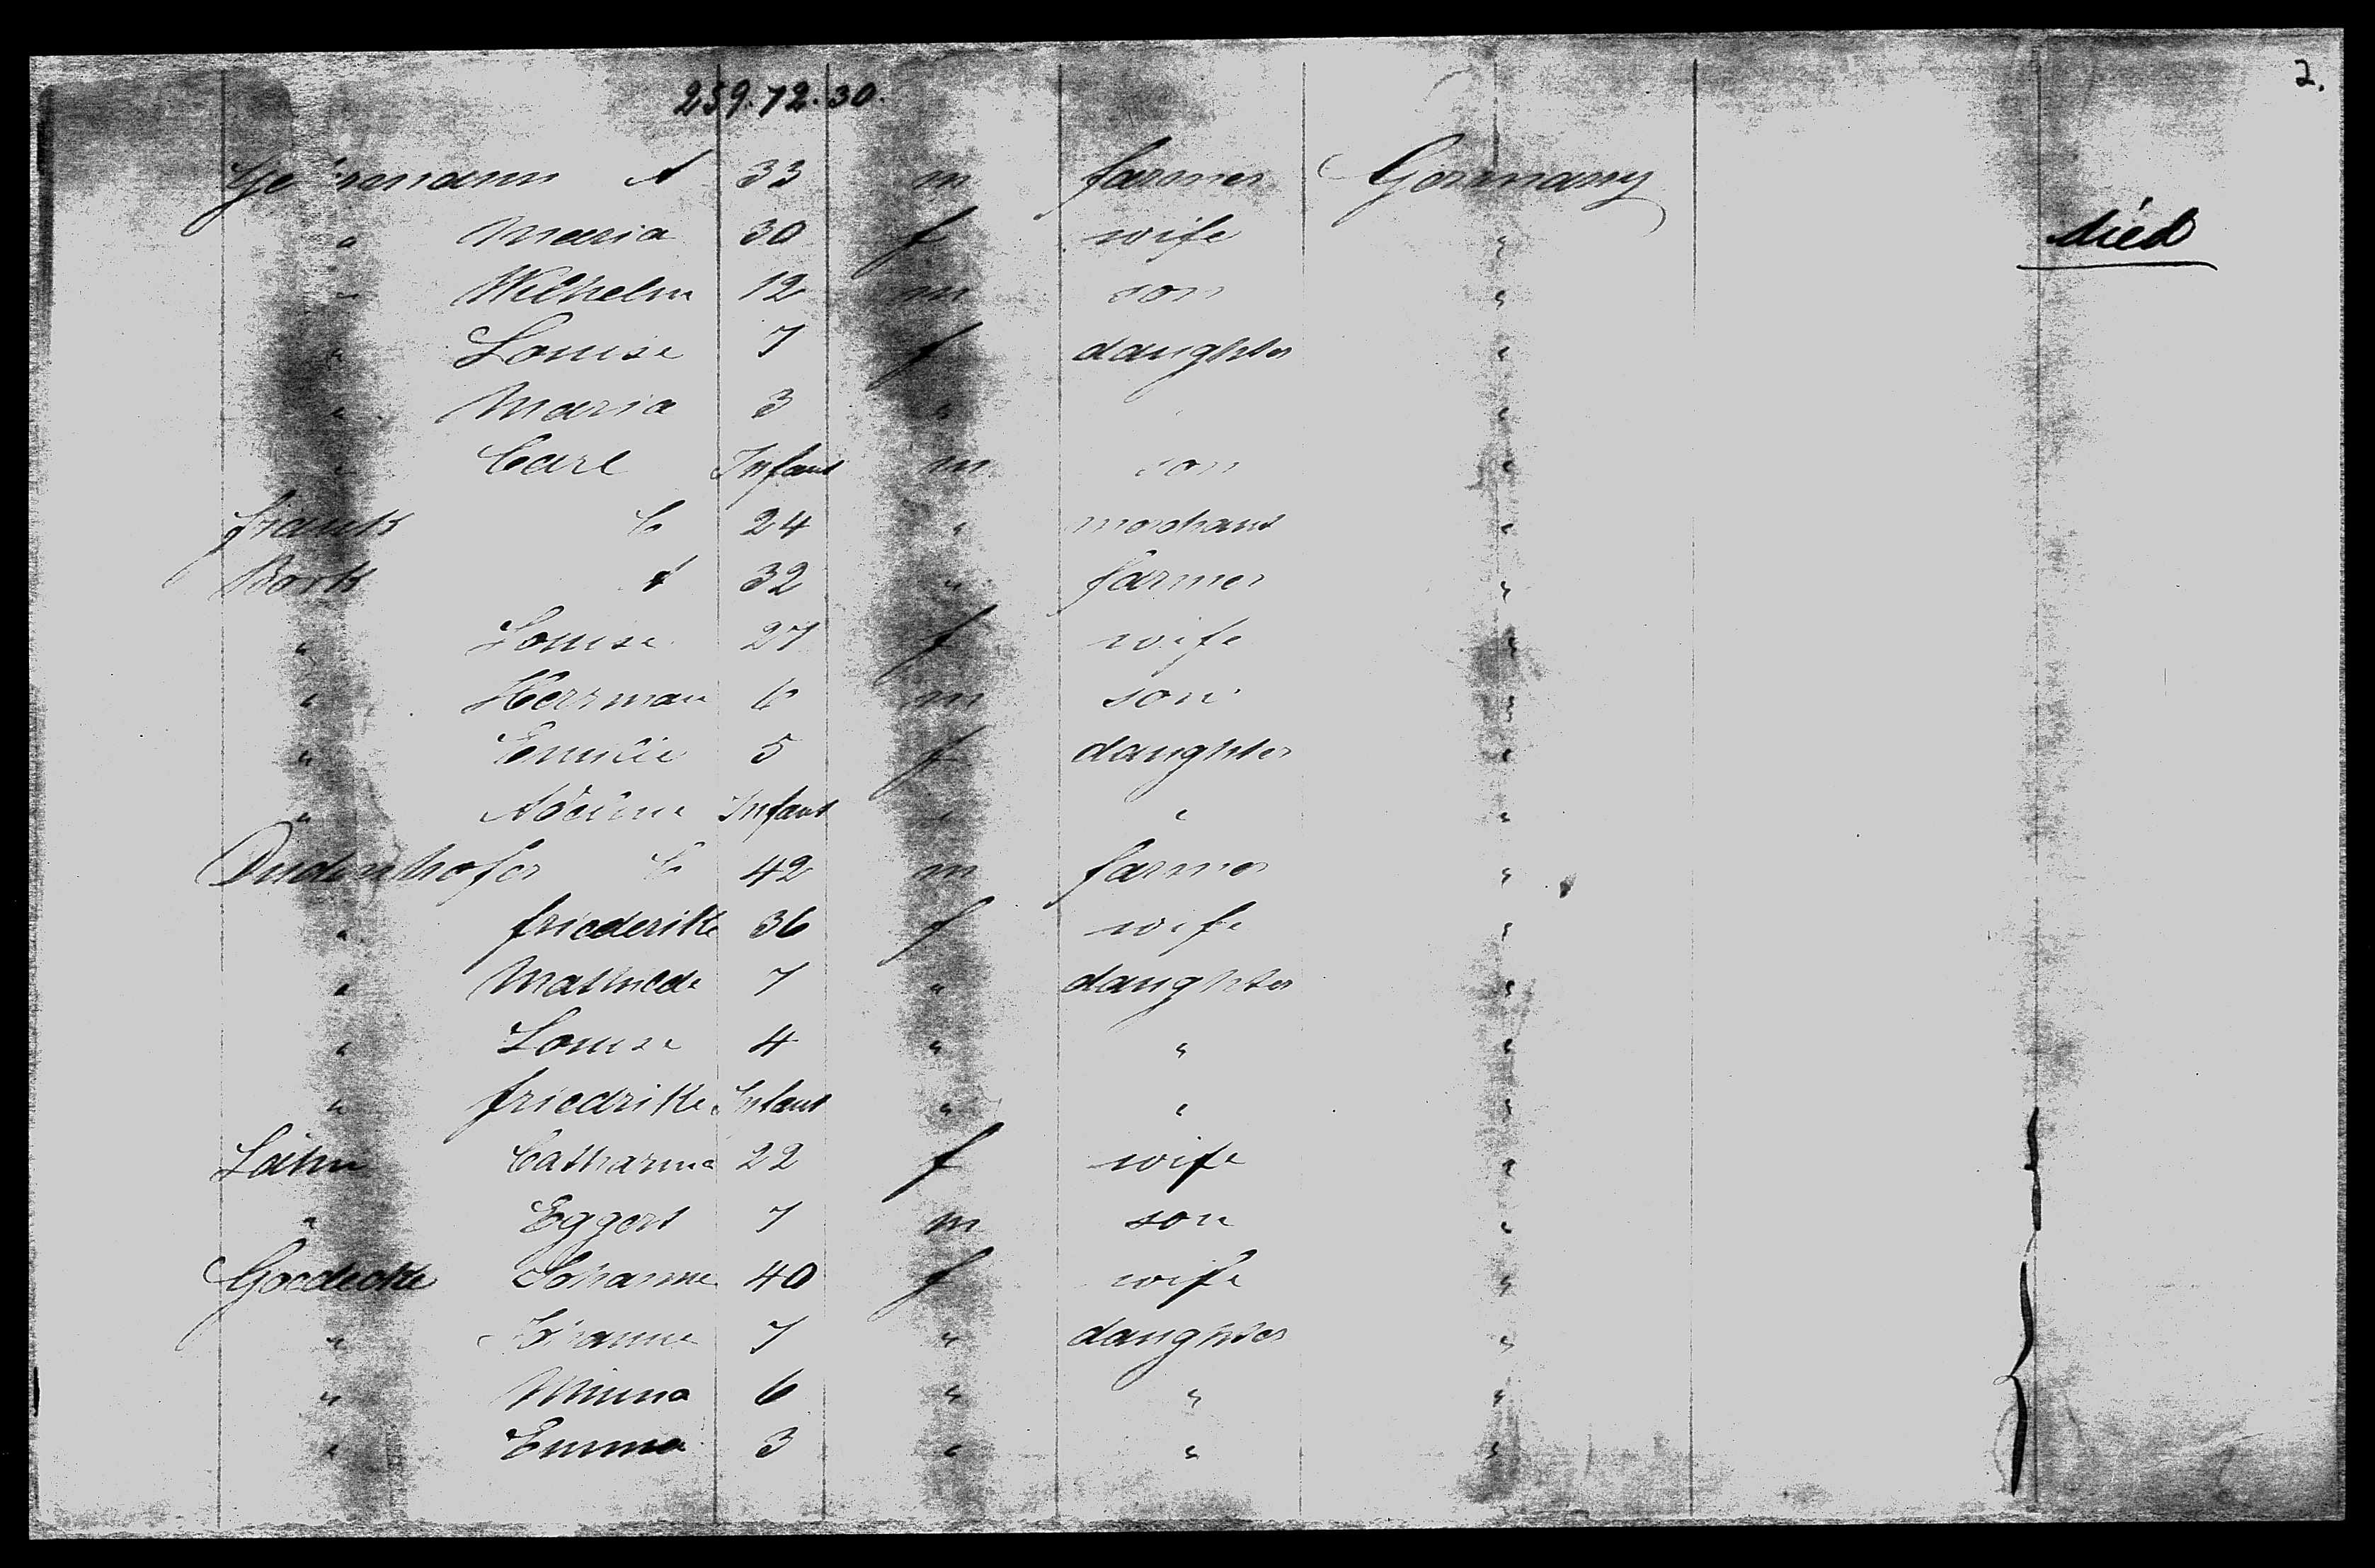 2.
259.72.30.
A 33 m farmer Germany
" Maria 30 f wife " died
" Wilhelm 12 m son "
" Louise 7 f daughter "
" Maria 3 " " "
" Carl Infant m son "
Frank C 24 " merchant "
Bork A 32 " farmer "
" Louise 27 f wife "
" Herrman 6 m son "
" Emilie 5 f daughter "
" Infant " " "
Dudenhofer C 42 m farmer "
" friederike 36 f wife "
" Mathilde 7 " daughter "
" Louise 4 " " "
" friedrike Infant " " "
Catharina 22 f wife "
" Eggert 7 m son "
Goedecke Johanne 40 f wife "
" 7 " daughter "
" Minna 6 " " "
" Emma 3 " " "